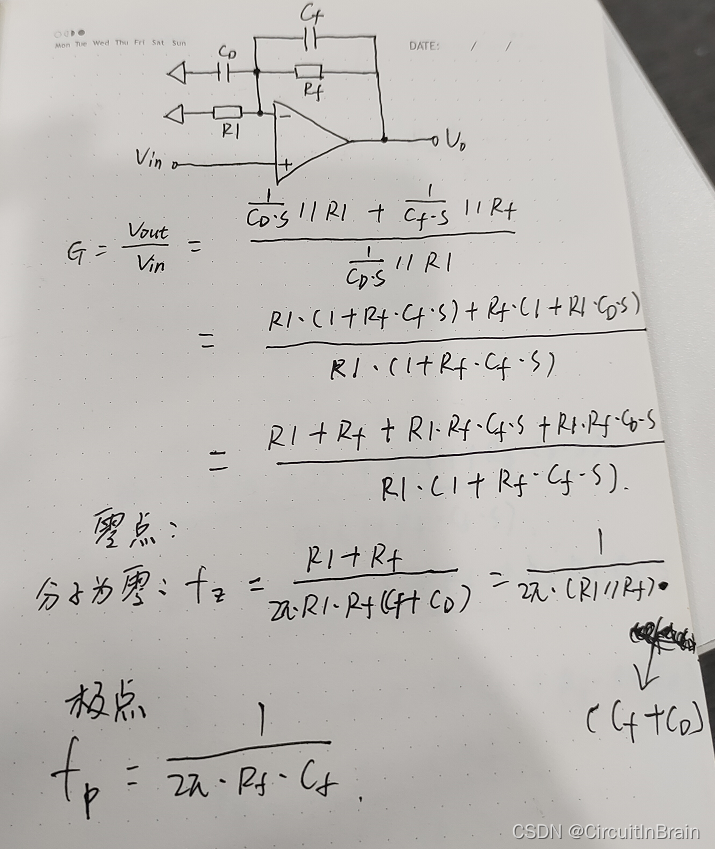 Mon Tue Wed Thu Fri Sat Sun
DATE: / /
Cf
CD
Rf
R1
Vin
−
+
Uo
G = Vout/Vin = (1/(CD·S) // R1 + 1/(Cf·S) // Rf) / (1/(CD·S) // R1)
= (R1·(1+Rf·Cf·S) + Rf·(1+R1·CD·S)) / (R1·(1+Rf·Cf·S))
= (R1+Rf + R1·Rf·Cf·S + R1·Rf·CD·S) / (R1·(1+Rf·Cf·S)).
零点:
分子为零: fz = (R1+Rf) / (2π·R1·Rf(Cf+CD)) = 1 / (2π·(R1//Rf)·
(Cf+CD)
极点
fp = 1 / (2π·Rf·Cf).
CSDN @CircuitInBrain